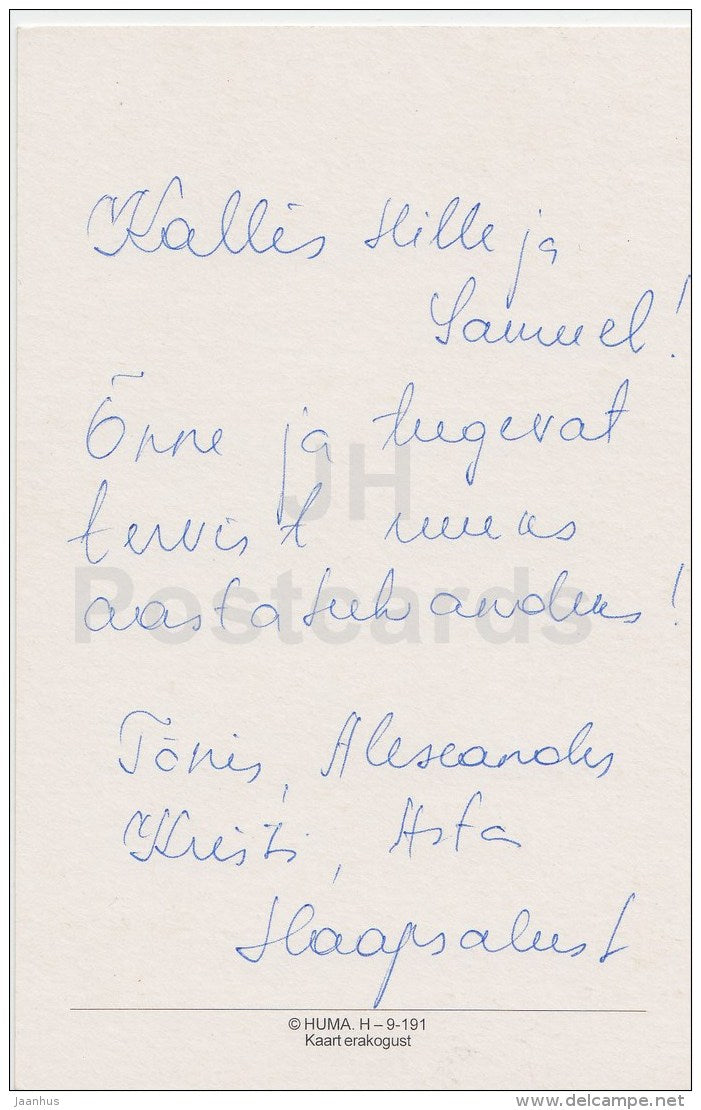 Kallis Hille ja
Samuel!
Õnne ja tugevat
tervist uues
aastatuhandes!
Tõnis, Alexander
Kristi, Asta
Haapsalust
JH
Postcards
© HUMA. H – 9-191
Kaart erakogust
Jaanhus
delcampe.net